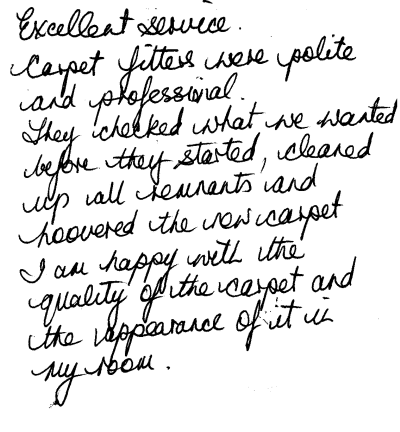 Excellent service.
Carpet fitters were polite
and professional.
They checked what we wanted
before they started, cleaned
up all remnants and
hoovered the new carpet
I am happy with the
quality of the carpet and
the appearance of it in
my room.